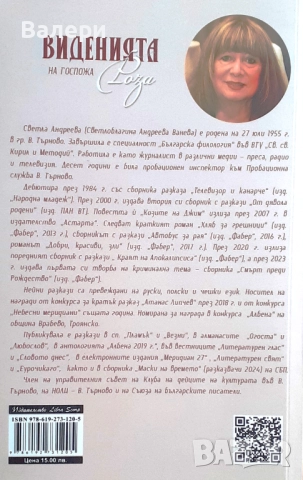 ВИДЕНИЯТА
НА ГОСПОЖА
Рози
Светла Андреева (Светлоблагина Андреева Ванева) е родена на 27 юли 1955 г.
в гр. В. Търново. Завършила е специалност „Българска филология“ във ВТУ „Св. св.
Кирил и Методий“. Работила е като журналист в различни медии – преса, радио
и телевизия. Десет години е била пробационен инспектор към Пробационна
служба В. Търново.
Дебютира през 1984 г. със сборника разкази „Телевизор и канарче“ (изд.
„Народна младеж“). През 2000 г. издава втория си сборник с разкази „От дявола
родени“ (изд. ПАН ВТ). Повестта ѝ „Козите на Джим“ излиза през 2007 г. в
издателство „Астарта“. Следват краткият роман „Хляб за грешници“ (изд.
„Фабер“, 2013 г.), сборникът с разкази „Автобус за рая“ (изд. „Фабер“, 2016 г.),
романът „Добри, красиви, зли“ (изд. „Фабер“, 2017 г.). През 2020 г. излиза
поредният сборник с разкази „Краят на Апокалипсиса“ (изд. „Фабер“), а през 2023
г. издава първата си творба на криминална тема – сборника „Смърт преди
Рождество“ (изд. „Фабер“).
Нейни разкази са превеждани на руски, полски и чешки език. Носител на
награди от конкурса за кратък разказ „Атанас Липчев“ през 2018 г. и от конкурса
„Небесни меридиани“ същата година. Номинирана за награда в конкурса „Албена“ на
община Врабево, Троянско.
Публикувала е разкази в сп. „Пламък“ и „Везни“, в алманасите „Огоста“ и
„Любослов“, в антологията „Албена 2019 г.“, във вестниците „Литературен глас“
и „Словото днес“, в електронните издания „Меридиан 27“, „Литературен свят“ и
„Еурочикаго“, както и в сборника „Маски на времето“ (разказвачи 2024) на СБП.
Член на управителния съвет на Клуба на дейците на културата във В.
Търново, на НОЛИ – В. Търново и на Съюза на българските писатели.
Издателство Libra Scorp
ISBN 978-619-273-120-5
9 786192 731205
Цена 15.00 лв.
bazar